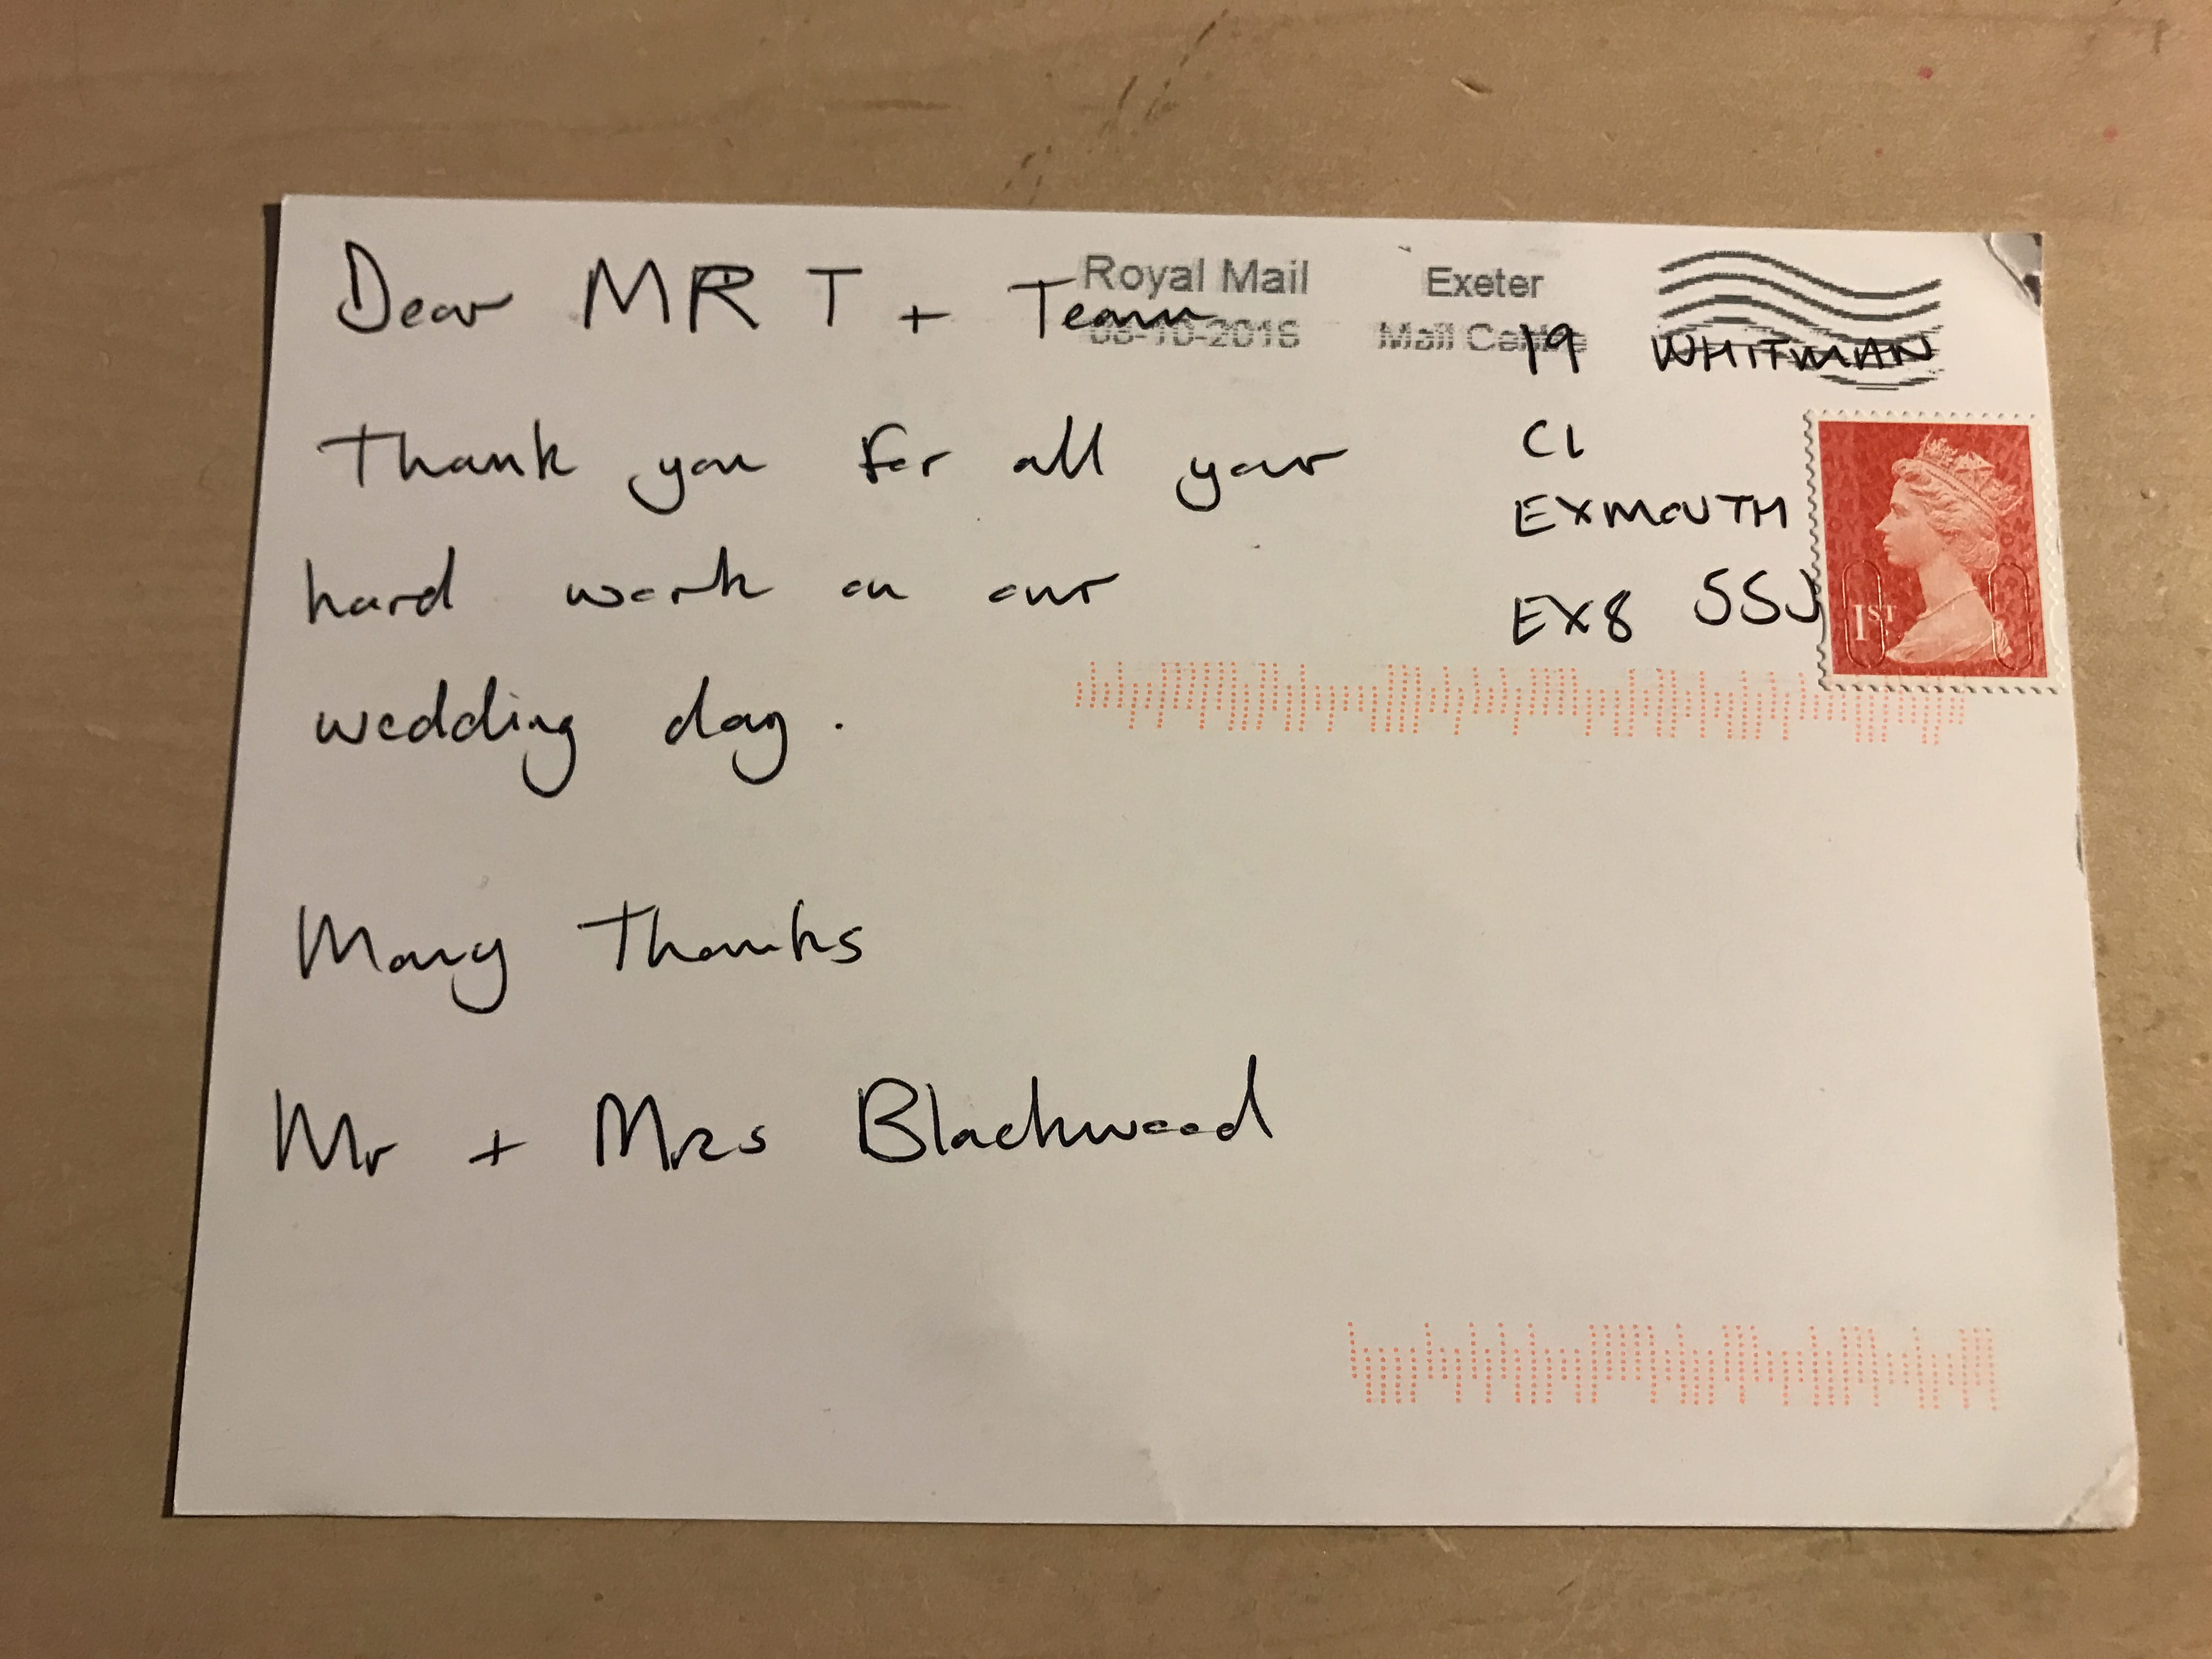 Dear MR T + Team
Thank you for all your
hard work on our
wedding day.
Many Thanks
Mr + Mrs Blackwood
Royal Mail Exeter
Mail Centre
19 WHITMAN
Cl
EXMOUTH
EX8 5SJ
1ST